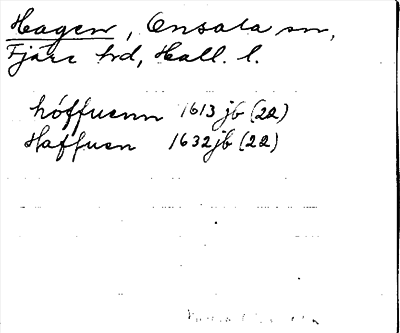 Hagen, Onsala sn,
Fjäre hd, Hall. l.
hóffuenn 1613 jb (22)
Haffuen 1632 jb (22)